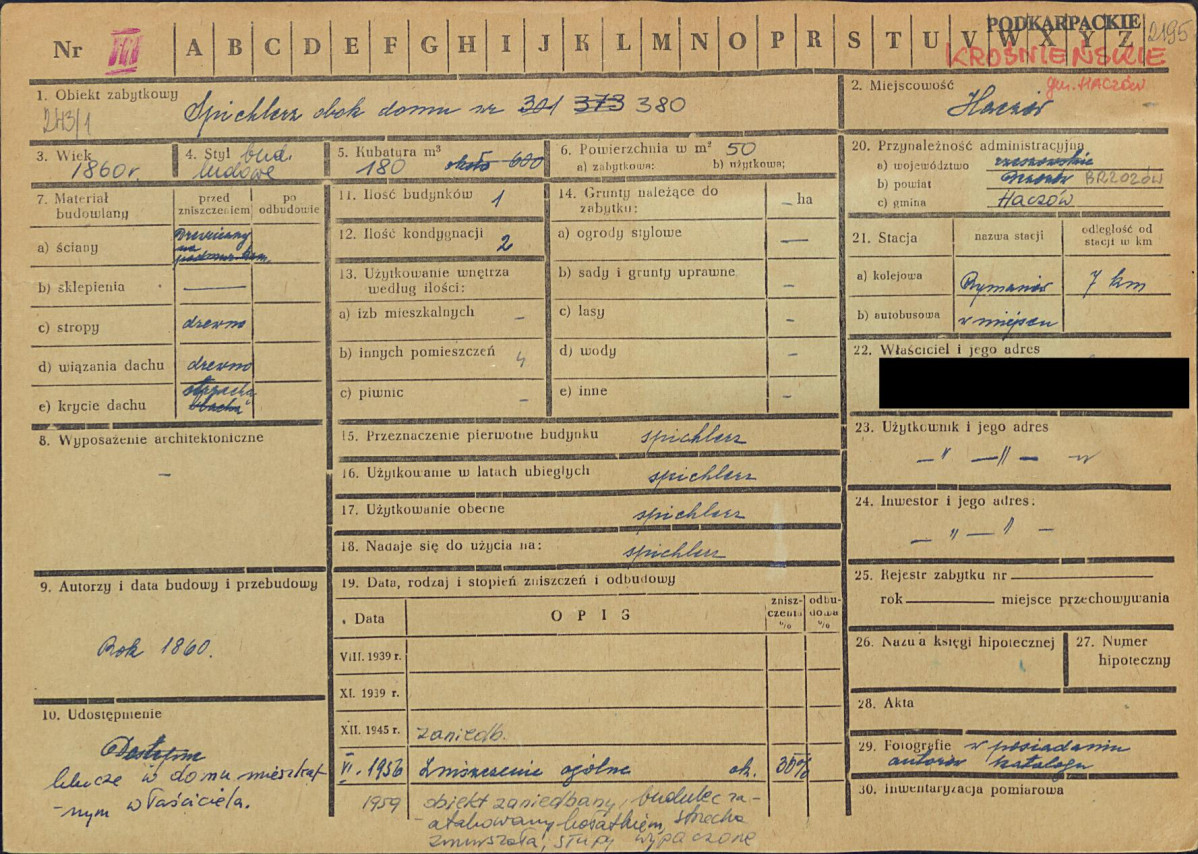 Nr III A B C D E F G H I J K L M N O P R S T U V W X Y Z
PODKARPACKIE
2195
KROŚNIEŃSKIE
gm. HACZÓW
1. Obiekt zabytkowy
2H3/1
Spichlerz obok domu nr 301 373 380
2. Miejscowość
Haczów
3. Wiek
1860 r.
4. Styl bud.
ludowe
5. Kubatura m³
180 około 600
6. Powierzchnia w m² 50
a) zabytkowa: b) użytkowa:
20. Przynależność administracyjna
a) województwo rzeszowskie
b) powiat BRZOZÓW
c) gmina HACZÓW
7. Materiał budowlany
przed zniszczeniem
po odbudowie
a) ściany
drewniany
na
b) sklepienia —
c) stropy drewno
d) wiązania dachu drewno
e) krycie dachu
11. Ilość budynków 1
12. Ilość kondygnacji 2
13. Użytkowanie wnętrza
według ilości:
a) izb mieszkalnych –
b) innych pomieszczeń 4
c) piwnic –
14. Grunty należące do
zabytku: – ha
a) ogrody stylowe —
b) sady i grunty uprawne –
c) lasy –
d) wody –
e) inne –
21. Stacja
nazwa stacji
odległość od
stacji w km
a) kolejowa Rymanów 7 km
b) autobusowa w miejscu
22. Właściciel i jego adres
8. Wyposażenie architektoniczne
–
15. Przeznaczenie pierwotne budynku spichlerz
16. Użytkowanie w latach ubiegłych spichlerz
17. Użytkowanie obecne spichlerz
18. Nadaje się do użycia na: spichlerz
23. Użytkownik i jego adres
– " — " –
24. Inwestor i jego adres:
– " — " –
9. Autorzy i data budowy i przebudowy
Rok 1860.
19. Data, rodzaj i stopień zniszczeń i odbudowy
Data
OPIS
znisz-
czenia
%
odbu-
dowa
%
VIII. 1939 r.
XI. 1939 r.
XII. 1945 r. zaniedb.
VI. 1956 Zniszczenie ogólne ok. 30%
1959 obiekt zaniedbany, budulec za-
atakowany kosatkiem, strzecha
zmurszała, słupy wypaczone
25. Rejestr zabytku nr
rok miejsce przechowywania
26. Nazwa księgi hipotecznej
27. Numer
hipoteczny
28. Akta
29. Fotografie w posiadaniu
autorów katalogu
30. Inwentaryzacja pomiarowa
10. Udostępnienie
Dostępne
klucze w domu mieszkal-
-nym właściciela.